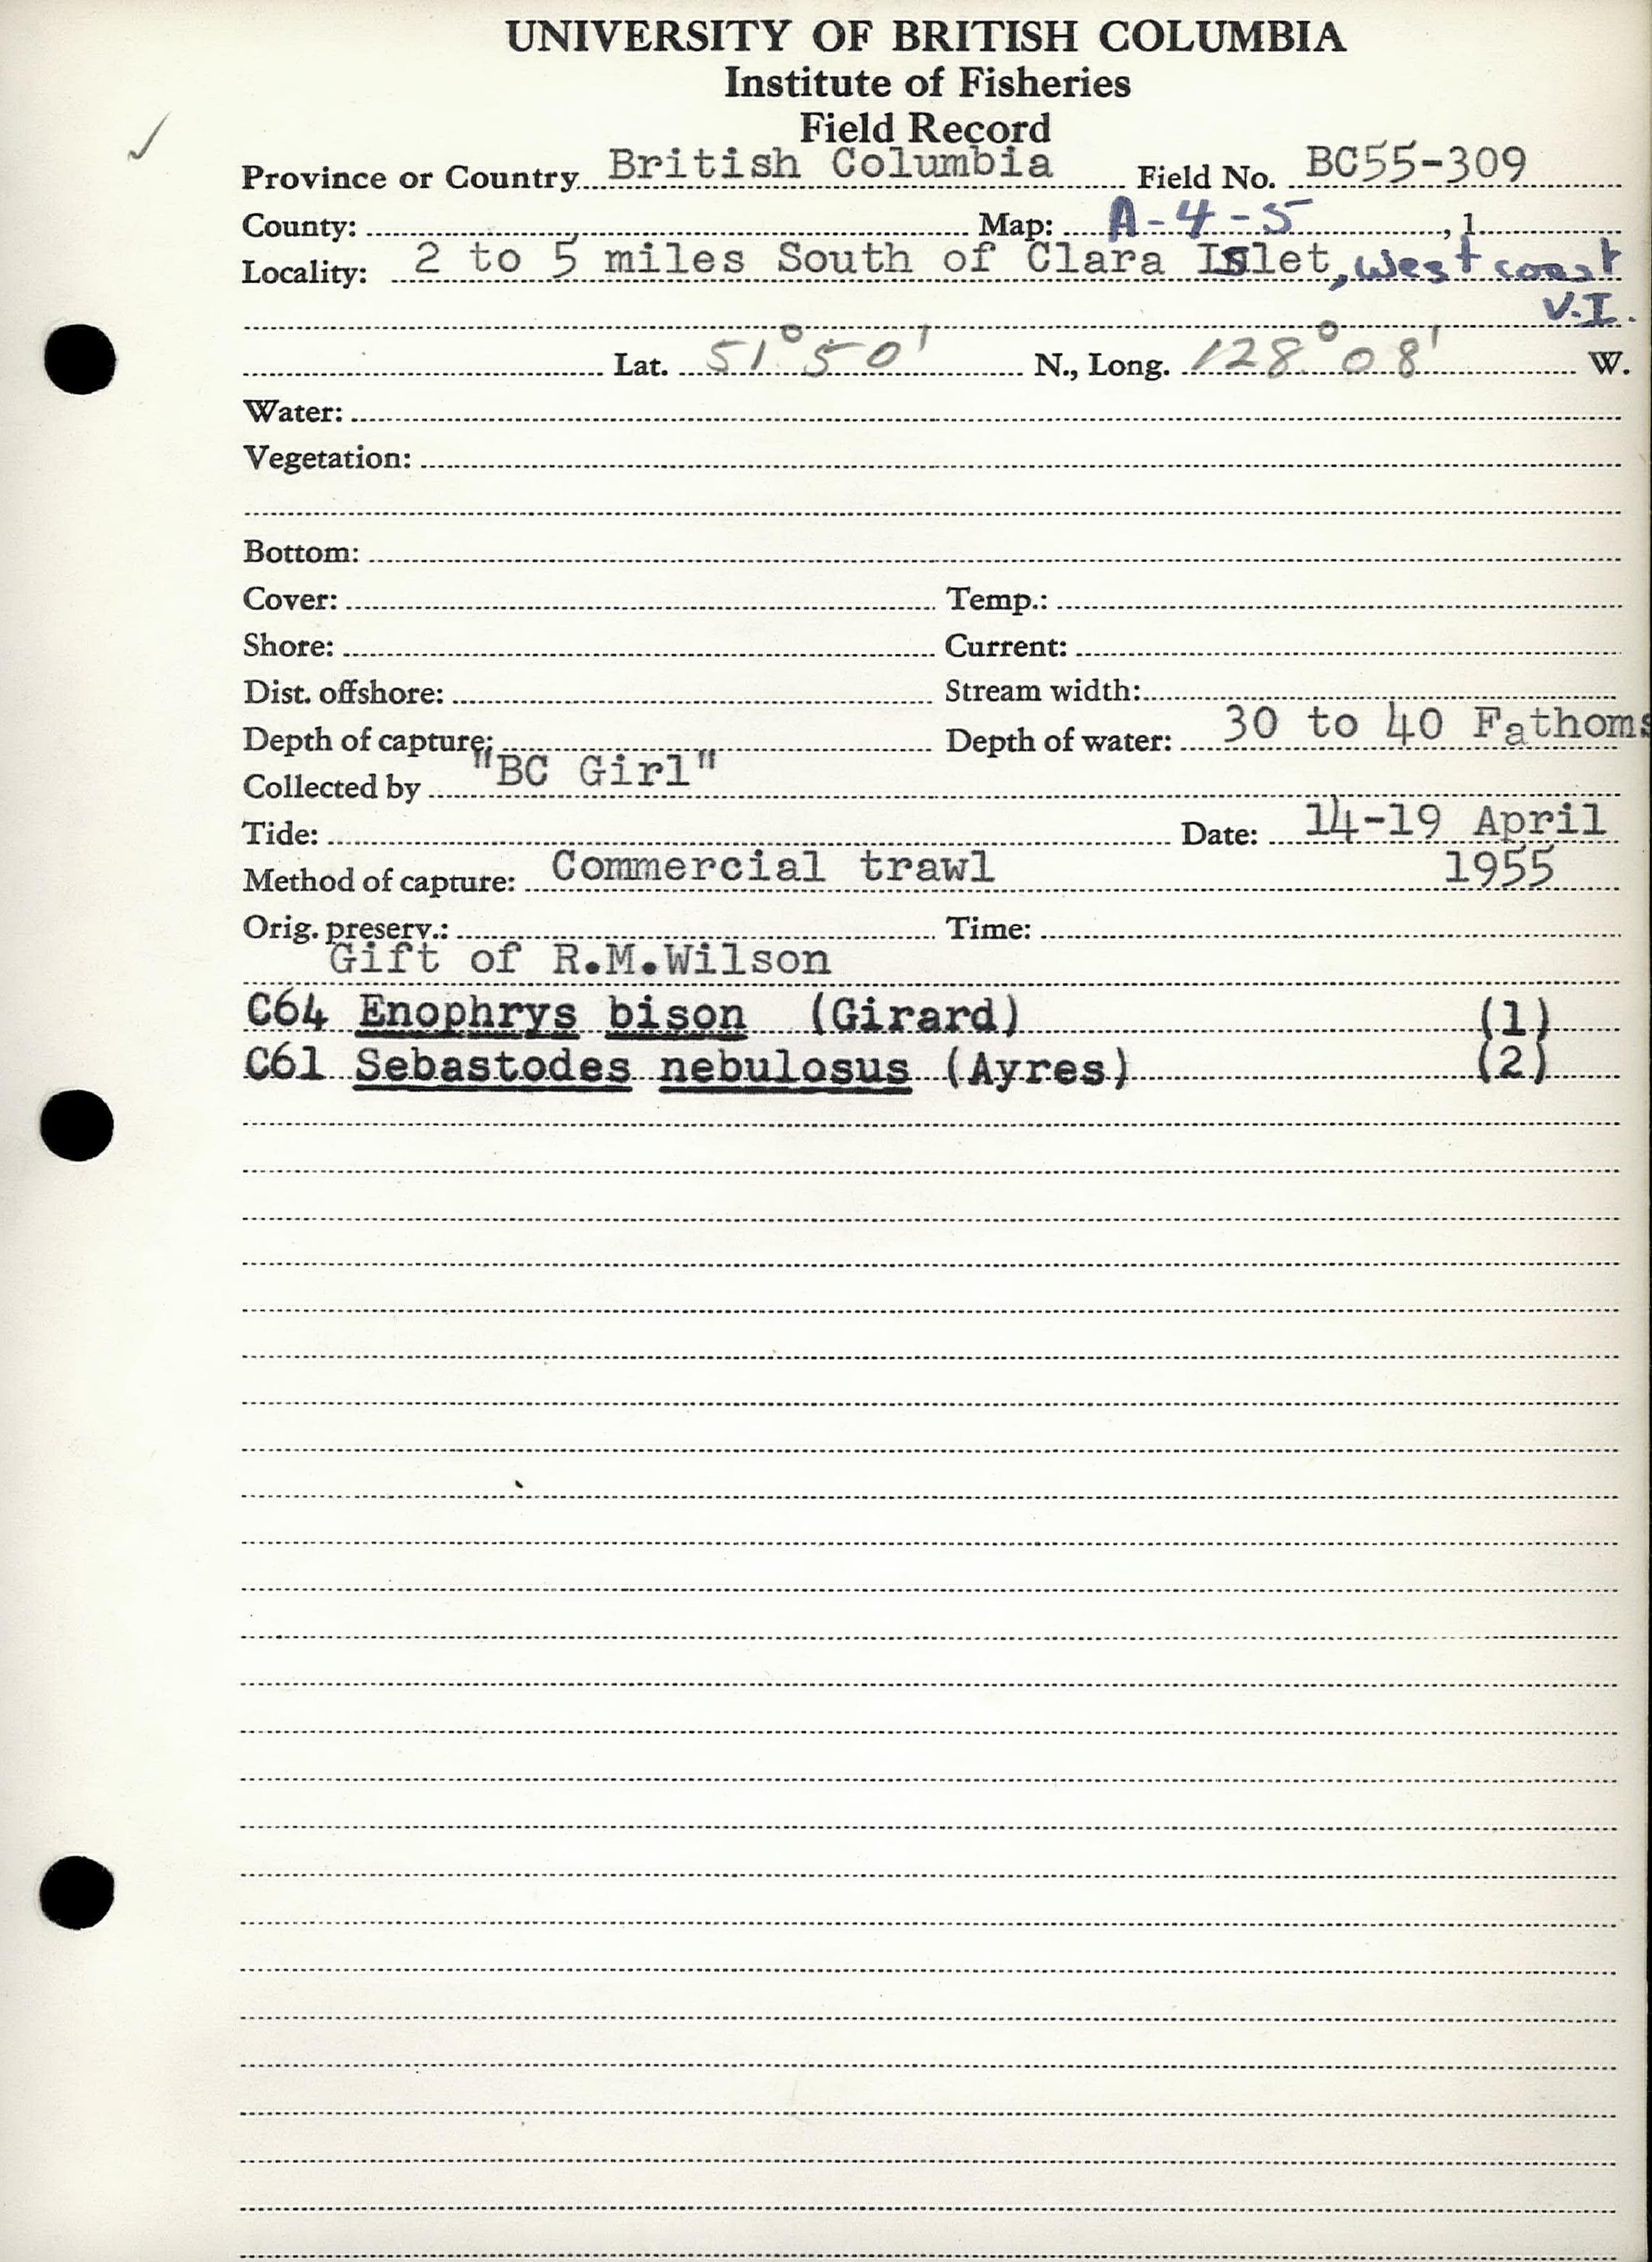 UNIVERSITY OF BRITISH COLUMBIA
Institute of Fisheries
Field Record
Province or Country British Columbia Field No. BC55-309
County: Map: A-4-5, 1
Locality: 2 to 5 miles South of Clara Islet, west coast
V.I.
Lat. 51° 50' N., Long. 128° 08' W.
Water:
Vegetation:
Bottom:
Cover: Temp.:
Shore: Current:
Dist. offshore: Stream width:
Depth of capture: Depth of water: 30 to 40 Fathoms
Collected by "BC Girl"
Tide: Date: 14-19 April
Method of capture: Commercial trawl 1955
Orig. preserv.: Time:
Gift of R.M.Wilson
C64 Enophrys bison (Girard) (1)
C61 Sebastodes nebulosus (Ayres) (2)